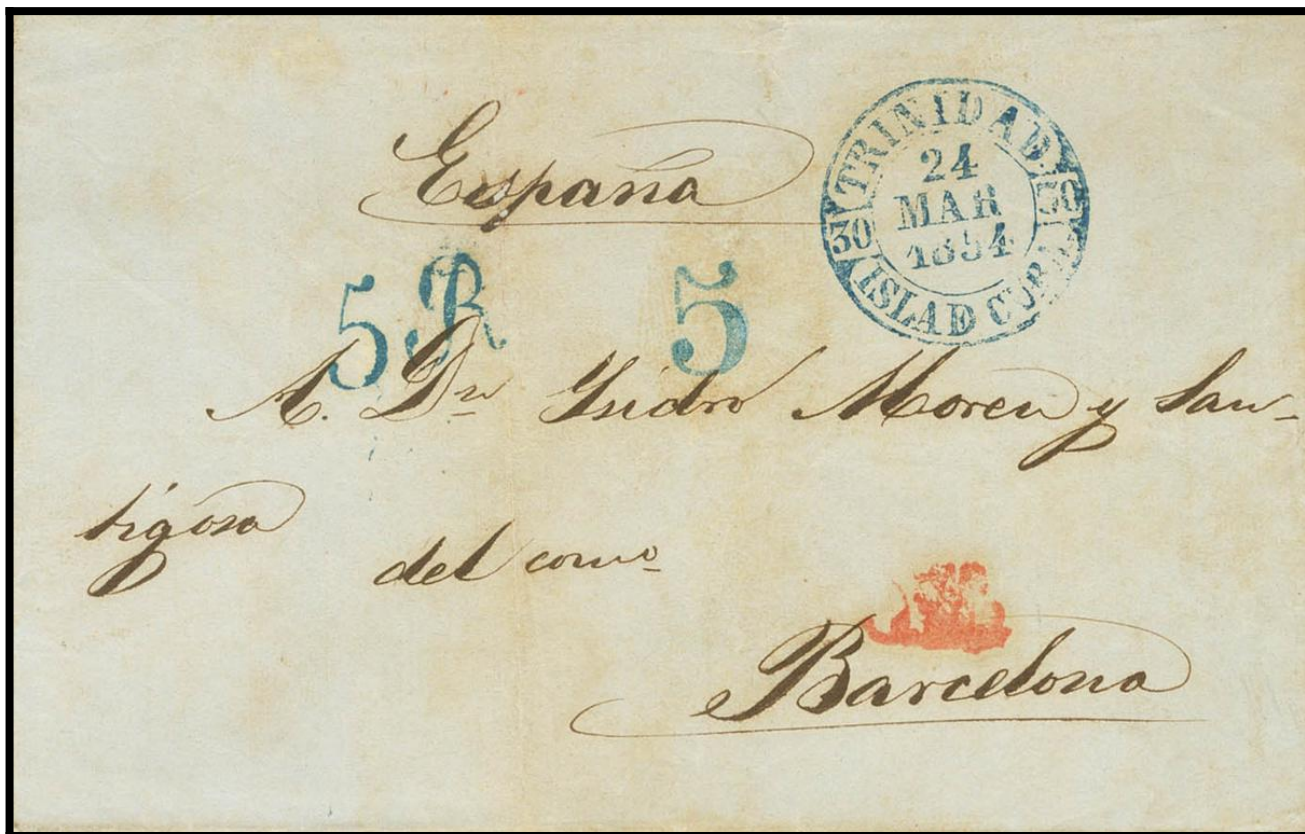 España
TRINIDAD.
24
MAR
1854
30 30
ISLA D CUBA
5 R 5
A. Dn Ysidro Moreu y San-
tigosa
del como
Barcelona